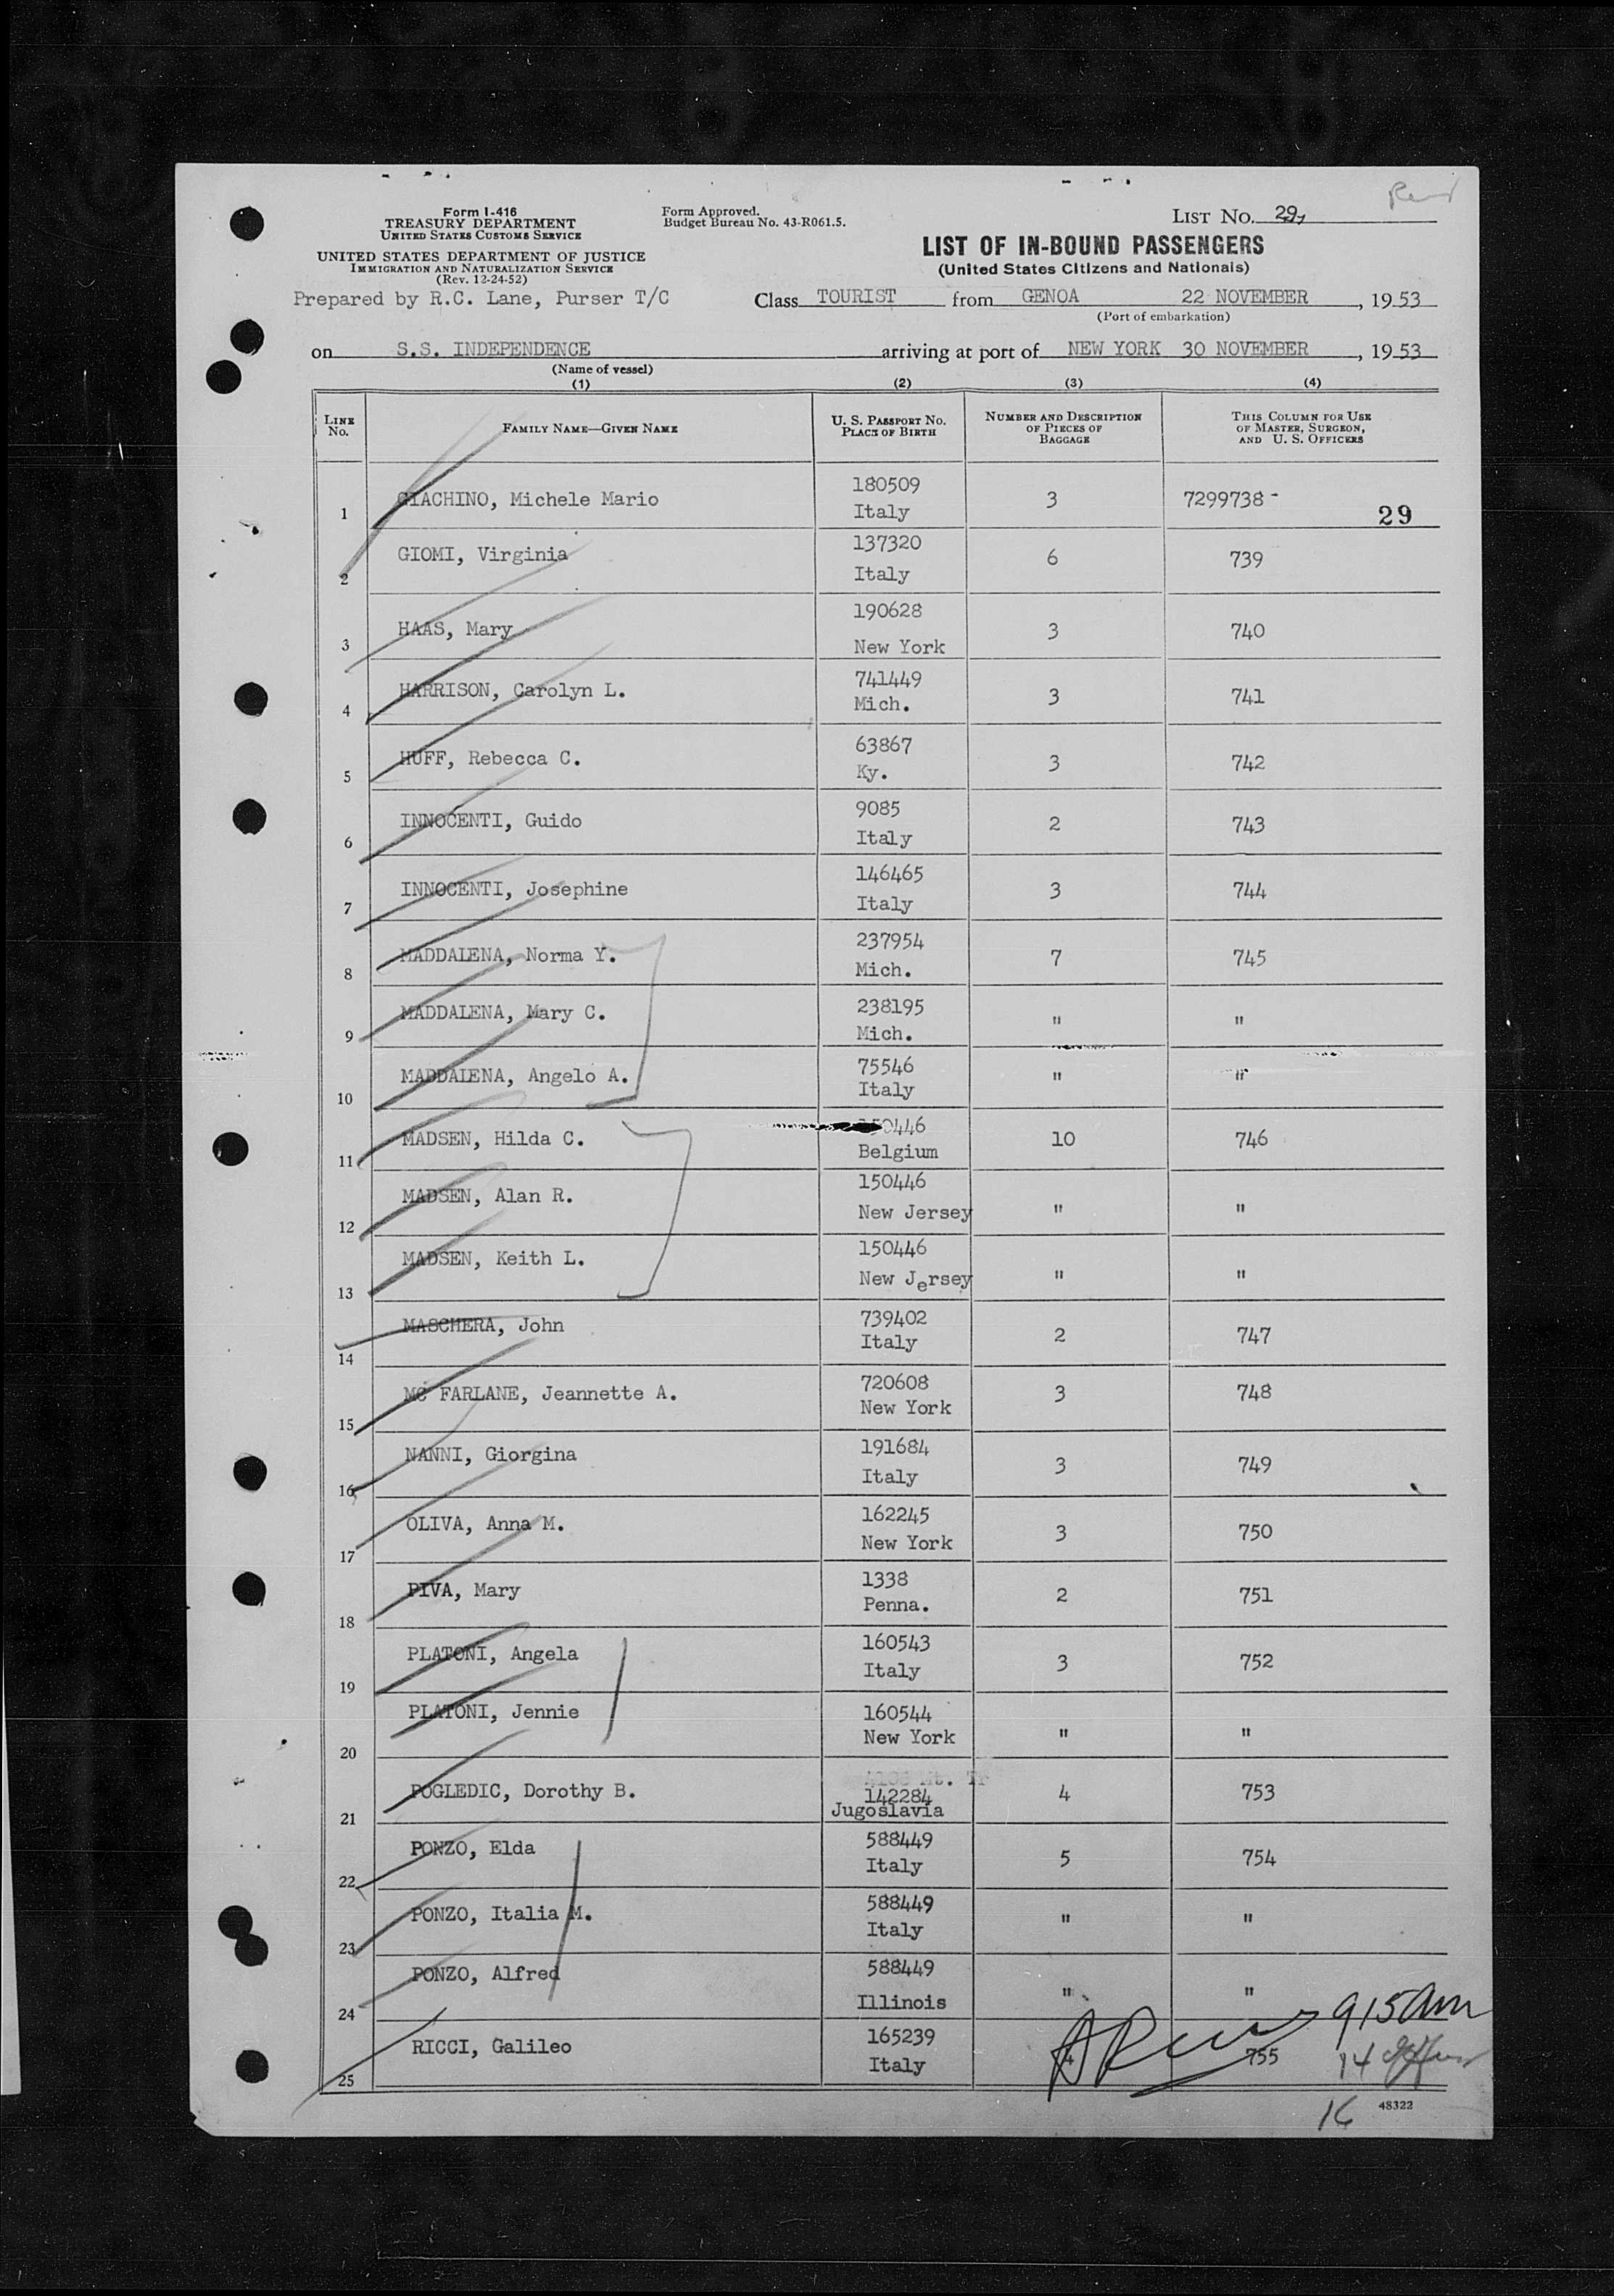 Rev
Form I-416
TREASURY DEPARTMENT
UNITED STATES CUSTOMS SERVICE
UNITED STATES DEPARTMENT OF JUSTICE
IMMIGRATION AND NATURALIZATION SERVICE
(Rev. 12-24-52)
Prepared by R.C. Lane, Purser T/C
Form Approved.
Budget Bureau No. 43-R061.5.
LIST NO. 29,
LIST OF IN-BOUND PASSENGERS
(United States Citizens and Nationals)
Class TOURIST from GENOA 22 NOVEMBER, 1953
(Port of embarkation)
on S.S. INDEPENDENCE arriving at port of NEW YORK 30 NOVEMBER, 1953
(Name of vessel)
(1) (2) (3) (4)
LINE NO. FAMILY NAME—GIVEN NAME U. S. PASSPORT NO. PLACE OF BIRTH NUMBER AND DESCRIPTION OF PIECES OF BAGGAGE THIS COLUMN FOR USE OF MASTER, SURGEON, AND U. S. OFFICERS
1 GIACHINO, Michele Mario 180509 Italy 3 7299738- 29
2 GIOMI, Virginia 137320 Italy 6 739
3 HAAS, Mary 190628 New York 3 740
4 HARRISON, Carolyn L. 741449 Mich. 3 741
5 HUFF, Rebecca C. 63867 Ky. 3 742
6 INNOCENTI, Guido 9085 Italy 2 743
7 INNOCENTI, Josephine 146465 Italy 3 744
8 MADDALENA, Norma Y. 237954 Mich. 7 745
9 MADDALENA, Mary C. 238195 Mich. " "
10 MADDALENA, Angelo A. 75546 Italy " "
11 MADSEN, Hilda C. 0446 Belgium 10 746
12 MADSEN, Alan R. 150446 New Jersey " "
13 MADSEN, Keith L. 150446 New Jersey " "
14 MASCHERA, John 739402 Italy 2 747
15 MC FARLANE, Jeannette A. 720608 New York 3 748
16 NANNI, Giorgina 191684 Italy 3 749
17 OLIVA, Anna M. 162245 New York 3 750
18 PIVA, Mary 1338 Penna. 2 751
19 PLATONI, Angela 160543 Italy 3 752
20 PLATONI, Jennie 160544 New York " "
21 POGLEDIC, Dorothy B. 142284 Jugoslavia 4 753
22 PONZO, Elda 588449 Italy 5 754
23 PONZO, Italia M. 588449 Italy " "
24 PONZO, Alfred 588449 Illinois " "
25 RICCI, Galileo 165239 Italy 4 755
915am
14
16
48322